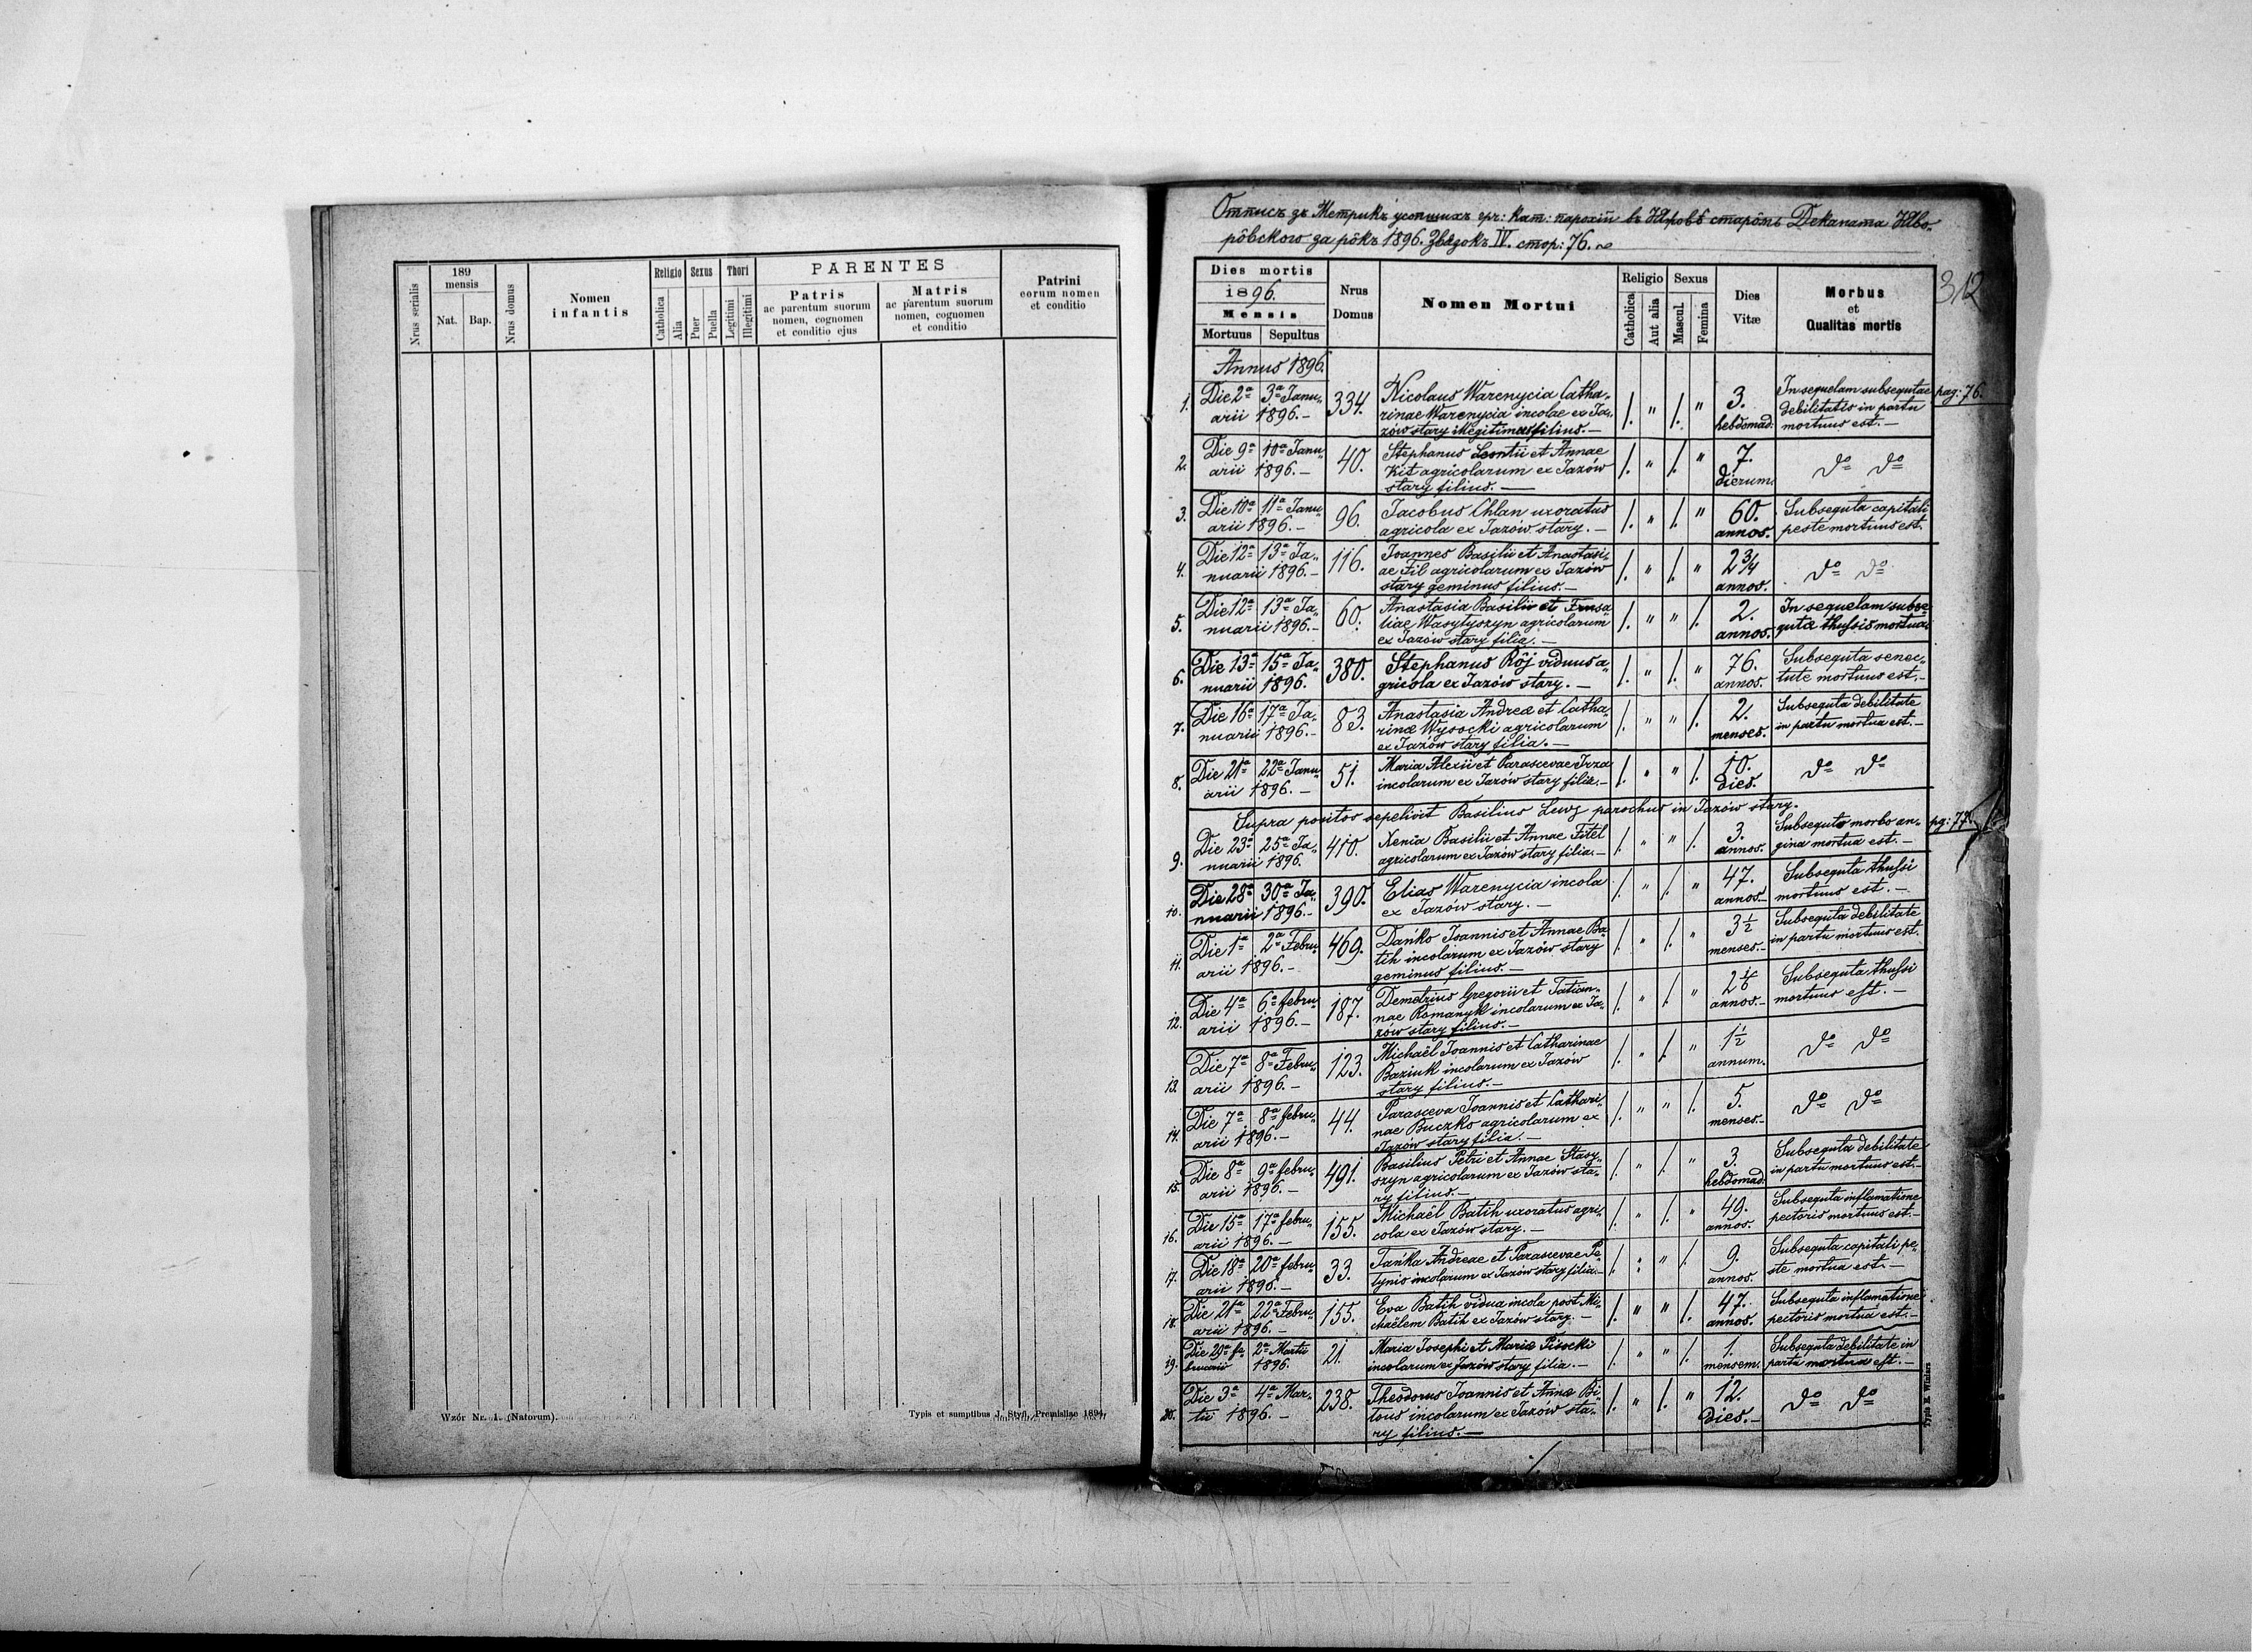 189
mensis
Nrus serialis
Nat.
Bap.
Nrus domus
Nomen
infantis
Religio
Sexus
Thori
Catholica
Alia
Puer
Puella
Legitimi
Illegitimi
PARENTES
Patris
ac parentum suorum
nomen, cognomen
et conditio ejus
Matris
ac parentum suorum
nomen, cognomen
et conditio
Patrini
eorum nomen
et conditio
Wzór Nr. 1. (Natorum).
Typis et sumptibus J. Styfi, Premisliae 1894.
Отписъ зъ Метрикъ усопшихъ гр: кат: парохіи въ Язровѣ старôмъ Деканата Яво-
рôвского за рôкъ 1896. Звязокъ IV. стор: 76.
312
Dies mortis
1896.
Mensis
Mortuus
Sepultus
Nrus
Domus
Nomen Mortui
Religio
Sexus
Catholica
Aut alia
Mascul.
Femina
Dies
Vitæ
Morbus
et
Qualitas mortis
Annus 1896.
1. Die 2ª 3ª Janu„ 334. Nicolaus Warenycia Catha„ /. " /. " 3. In sequelam subsequtae pag: 76.
arii 1896.– rinae Warenycia incolae ex Ja„ hebdomad. debilitatis in partu
zów stary illegitimus filius.– mortuus est.–
2. Die 9ª 10ª Janu„ 40. Stephanus Leontii et Annae /. " /. " 7. dº dº
arii 1896.– Kit agricolarum ex Jazów dierum.
stary filius.–
3. Die 10ª 11ª Janu„ 96. Jacobus Chlan uxoratus /. " /. " 60. Subsequta capitali
arii 1896.– agricola ex Jazów stary.– annos. peste mortuus est.
4. Die 12ª 13ª Ja„ 116. Joannes Basilii et Anastasi„ /. " /. " 2 3/4 dº dº
nuarii 1896.– ae Fil agricolarum ex Jazów annos.
stary geminus filius.–
5. Die 12ª 13ª Ja„ 60. Anastasia Basilii et /. " " /. 2. In sequelam subse„
nuarii 1896.– liae Wasylyszyn agricolarum annos. qutæ thussis mortua
ex Jazów stary filia.–
6. Die 13ª 15ª Ja„ 380. Stephanus Rôj viduus a„ /. " /. " 76. Subsequta senec„
nuarii 1896. gricola ex Jazów stary.– annos. tute mortuus est.–
7. Die 16ª 17ª Ja„ 83. Anastasia Andreæ et Catha„ /. " " /. 2. Subsequta debilitate
nuarii 1896.– rinæ Wysocki agricolarum menses. in partu mortua est.–
ex Jazów stary filia.–
8. Die 21ª 22ª Janu„ 51. Maria Alexii et Parascevae Irza /. " " /. 10. dº dº
arii 1896.– incolarum ex Jazów stary filia.– dies.
Supra positos sepelivit Basilius Lewy parochus in Jazów stary.
9. Die 23ª 25ª Ja„ 410. Xenia Basilii et Annae Fitel /. " " /. 3. Subsequto morbo an„ pg: 77.
nuarii 1896. agricolarum ex Jazów stary filia.– annos. gina mortua est.–
10. Die 28ª 30ª Ja„ 390. Elias Warenycia incola /. " /. " 47. Subsequta thussi
nuarii 1896.– ex Jazów stary.– annos. mortuus est.–
11. Die 1ª 2ª Febru„ 469. Dańko Joannis et Annae Ba„ /. " /. " 3 1/2 Subsequta debilitate
arii 1896.– tih incolarum ex Jazów stary menses.– in partu mortuus est.
geminus filius.–
12. Die 4ª 6ª febru„ 187. Demetrius Gregorii et Tatian„ /. " /. " 2 1/6 Subsequta thussi
arii 1896.– nae Romanyk incolarum ex Ja„ annos.– mortuus est.–
zów stary filius.–
13. Die 7ª 8ª Febru„ 123. Michaël Joannis et Catharinae /. " /. " 1 1/2 dº dº
arii 1896.– Baziuk incolarum ex Jazów annum.
stary filius.–
14. Die 7ª 8ª febru„ 44. Parasceva Joannis et Cathari„ /. " " /. 5. dº dº
arii 1896.– nae Buczko agricolarum ex menses.–
Jazów stary filia.–
15. Die 8ª 9ª febru„ 491. Basilius Petri et Annae Stasy„ /. " /. " 3. Subsequta debilitate
arii 1896.– szyn agricolarum ex Jazów sta„ hebdomad. in partu mortuus est.–
ry filius.–
16. Die 15ª 17ª febru„ 155. Michaël Batih uxoratus agri„ /. " /. " 49. Subsequta inflamatione
arii 1896.– cola ex Jazów stary.– annos pectoris mortuus est.–
17. Die 18ª 20ª febru„ 33. Tańka Andreae et Parascevae Pe„ /. " " /. 9. Subsequta capitali pe„
arii 1896.– tynio incolarum ex Jazów stary filia.– annos. ste mortua est.–
18. Die 21ª 22ª Febru„ 155. Eva Batih vidua incola post Mi„ /. " " /. 47. Subsequta inflamatione
arii 1896.– chaëlem Batih ex Jazów stary.– annos. pectoris mortua est.–
19. Die 29ª fe„ 2ª Martii 21. Maria Josephi et Mariæ Pisocki /. " " /. 1. Subsequta debilitate in
bruarii 1896. incolarum ex Jazów stary filia.– mensem. partu mortua est.–
20. Die 3ª 4ª Mar„ 238. Theodorus Joannis et Annæ Bi„ /. " /. " 12. dº dº
tii 1896.– tous incolarum ex Jazów sta„ dies.–
ry filius.–
Typis K. Winiarz